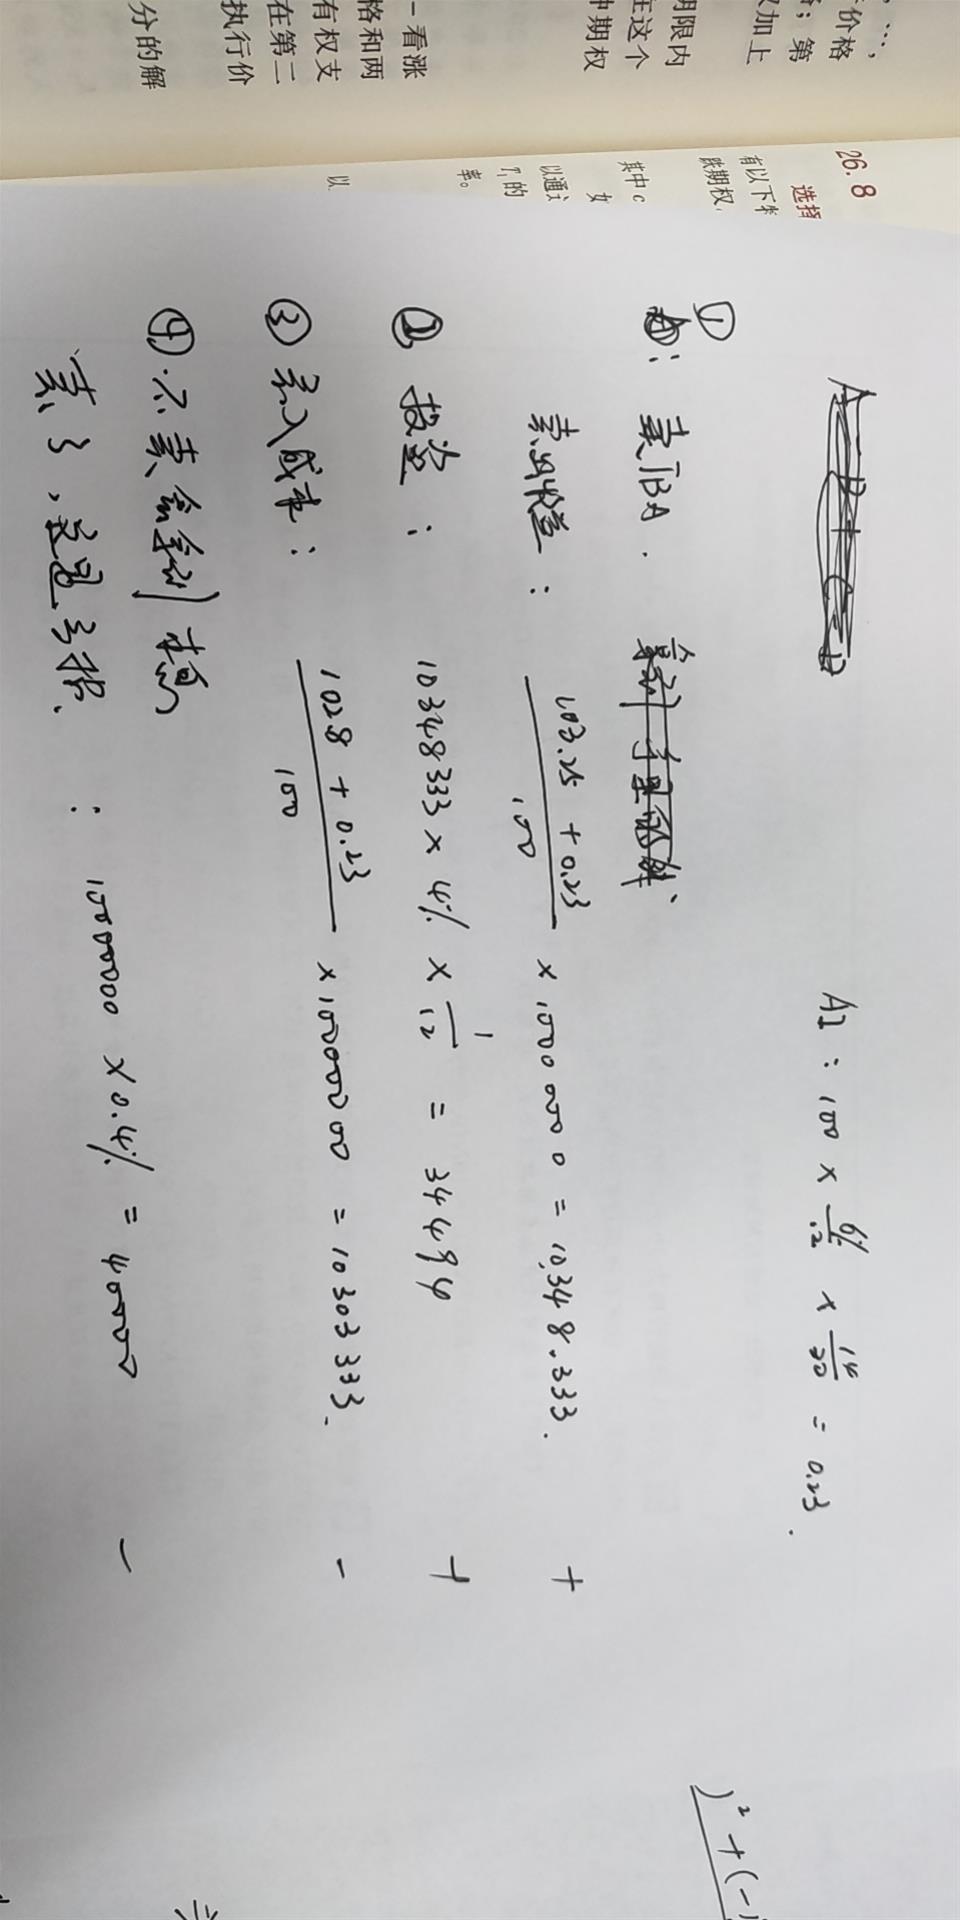 …，
价格
；第
加上
期限内
在这个
中期权
一看涨
格和两
有权支
在第二
执行价
分的解
26.8
选择
有以下
跌期权，
其中c
如
以通过
T₁的
率。
以
AI：100 × 6%/12 × 14/30 = 0.23.
①
卖TBA.
卖出收益： (103.25 + 0.23)/100 × 10000000 = 10,348,333. +
② 投资： 10348333 × 4% × 1/12 = 34494 +
③ 买入成本： (102.8 + 0.23)/100 × 10000000 = 10303333. -
④ 不卖会拿到本息
卖了，这是亏损. ： 10000000 × 0.4% = 40000 -
)² + (-1